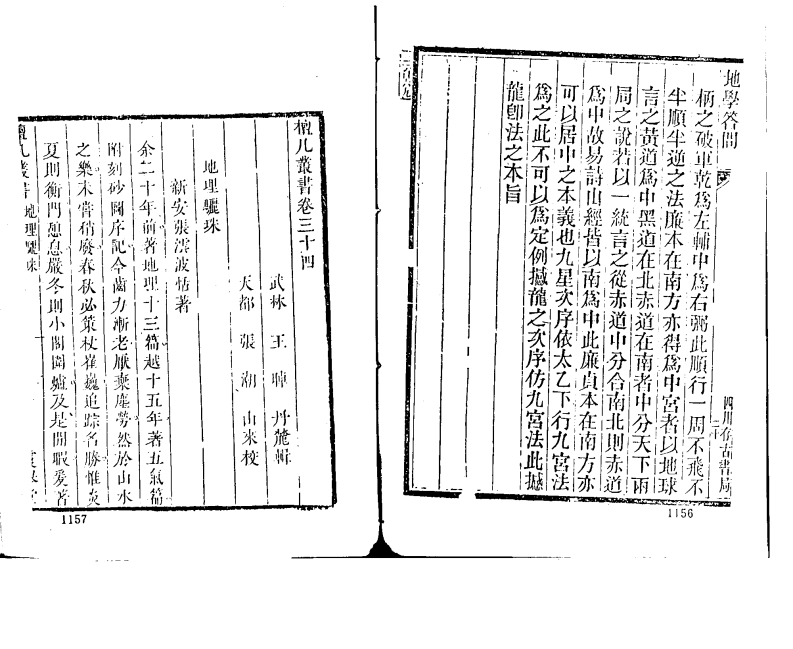 地學答問
四川存古書局
柄之破軍乾爲左輔中爲右弼此順行一周不飛不
半順半逆之法廉本在南方亦得爲中宮者以地球
言之黃道爲中黑道在北赤道在南者中分天下兩
局之說若以一統言之從赤道中分合南北則赤道
爲中故易詩山經皆以南爲中此廉貞本在南方亦
可以居中之本義也九星次序依太乙下行九宮法
爲之此不可以爲定例撼龍之次序仿九宮法此撼
龍卽法之本旨
1156
檀几叢書卷三十四
武林 王 晫 丹麓輯
天都 張 潮 山來校
地理驪珠
新安張澐波恬著
余二十年前著地理十三篇越十五年著五氣篇
附刻砂圖序記今齒力漸老厭棄塵勞然於山水
之樂未嘗稍廢春秋必策杖崔巍追踪名勝惟炎
夏則衡門憩息嚴冬則小閣圍爐及是閒暇爰著
檀几叢書 地理驪珠
1157